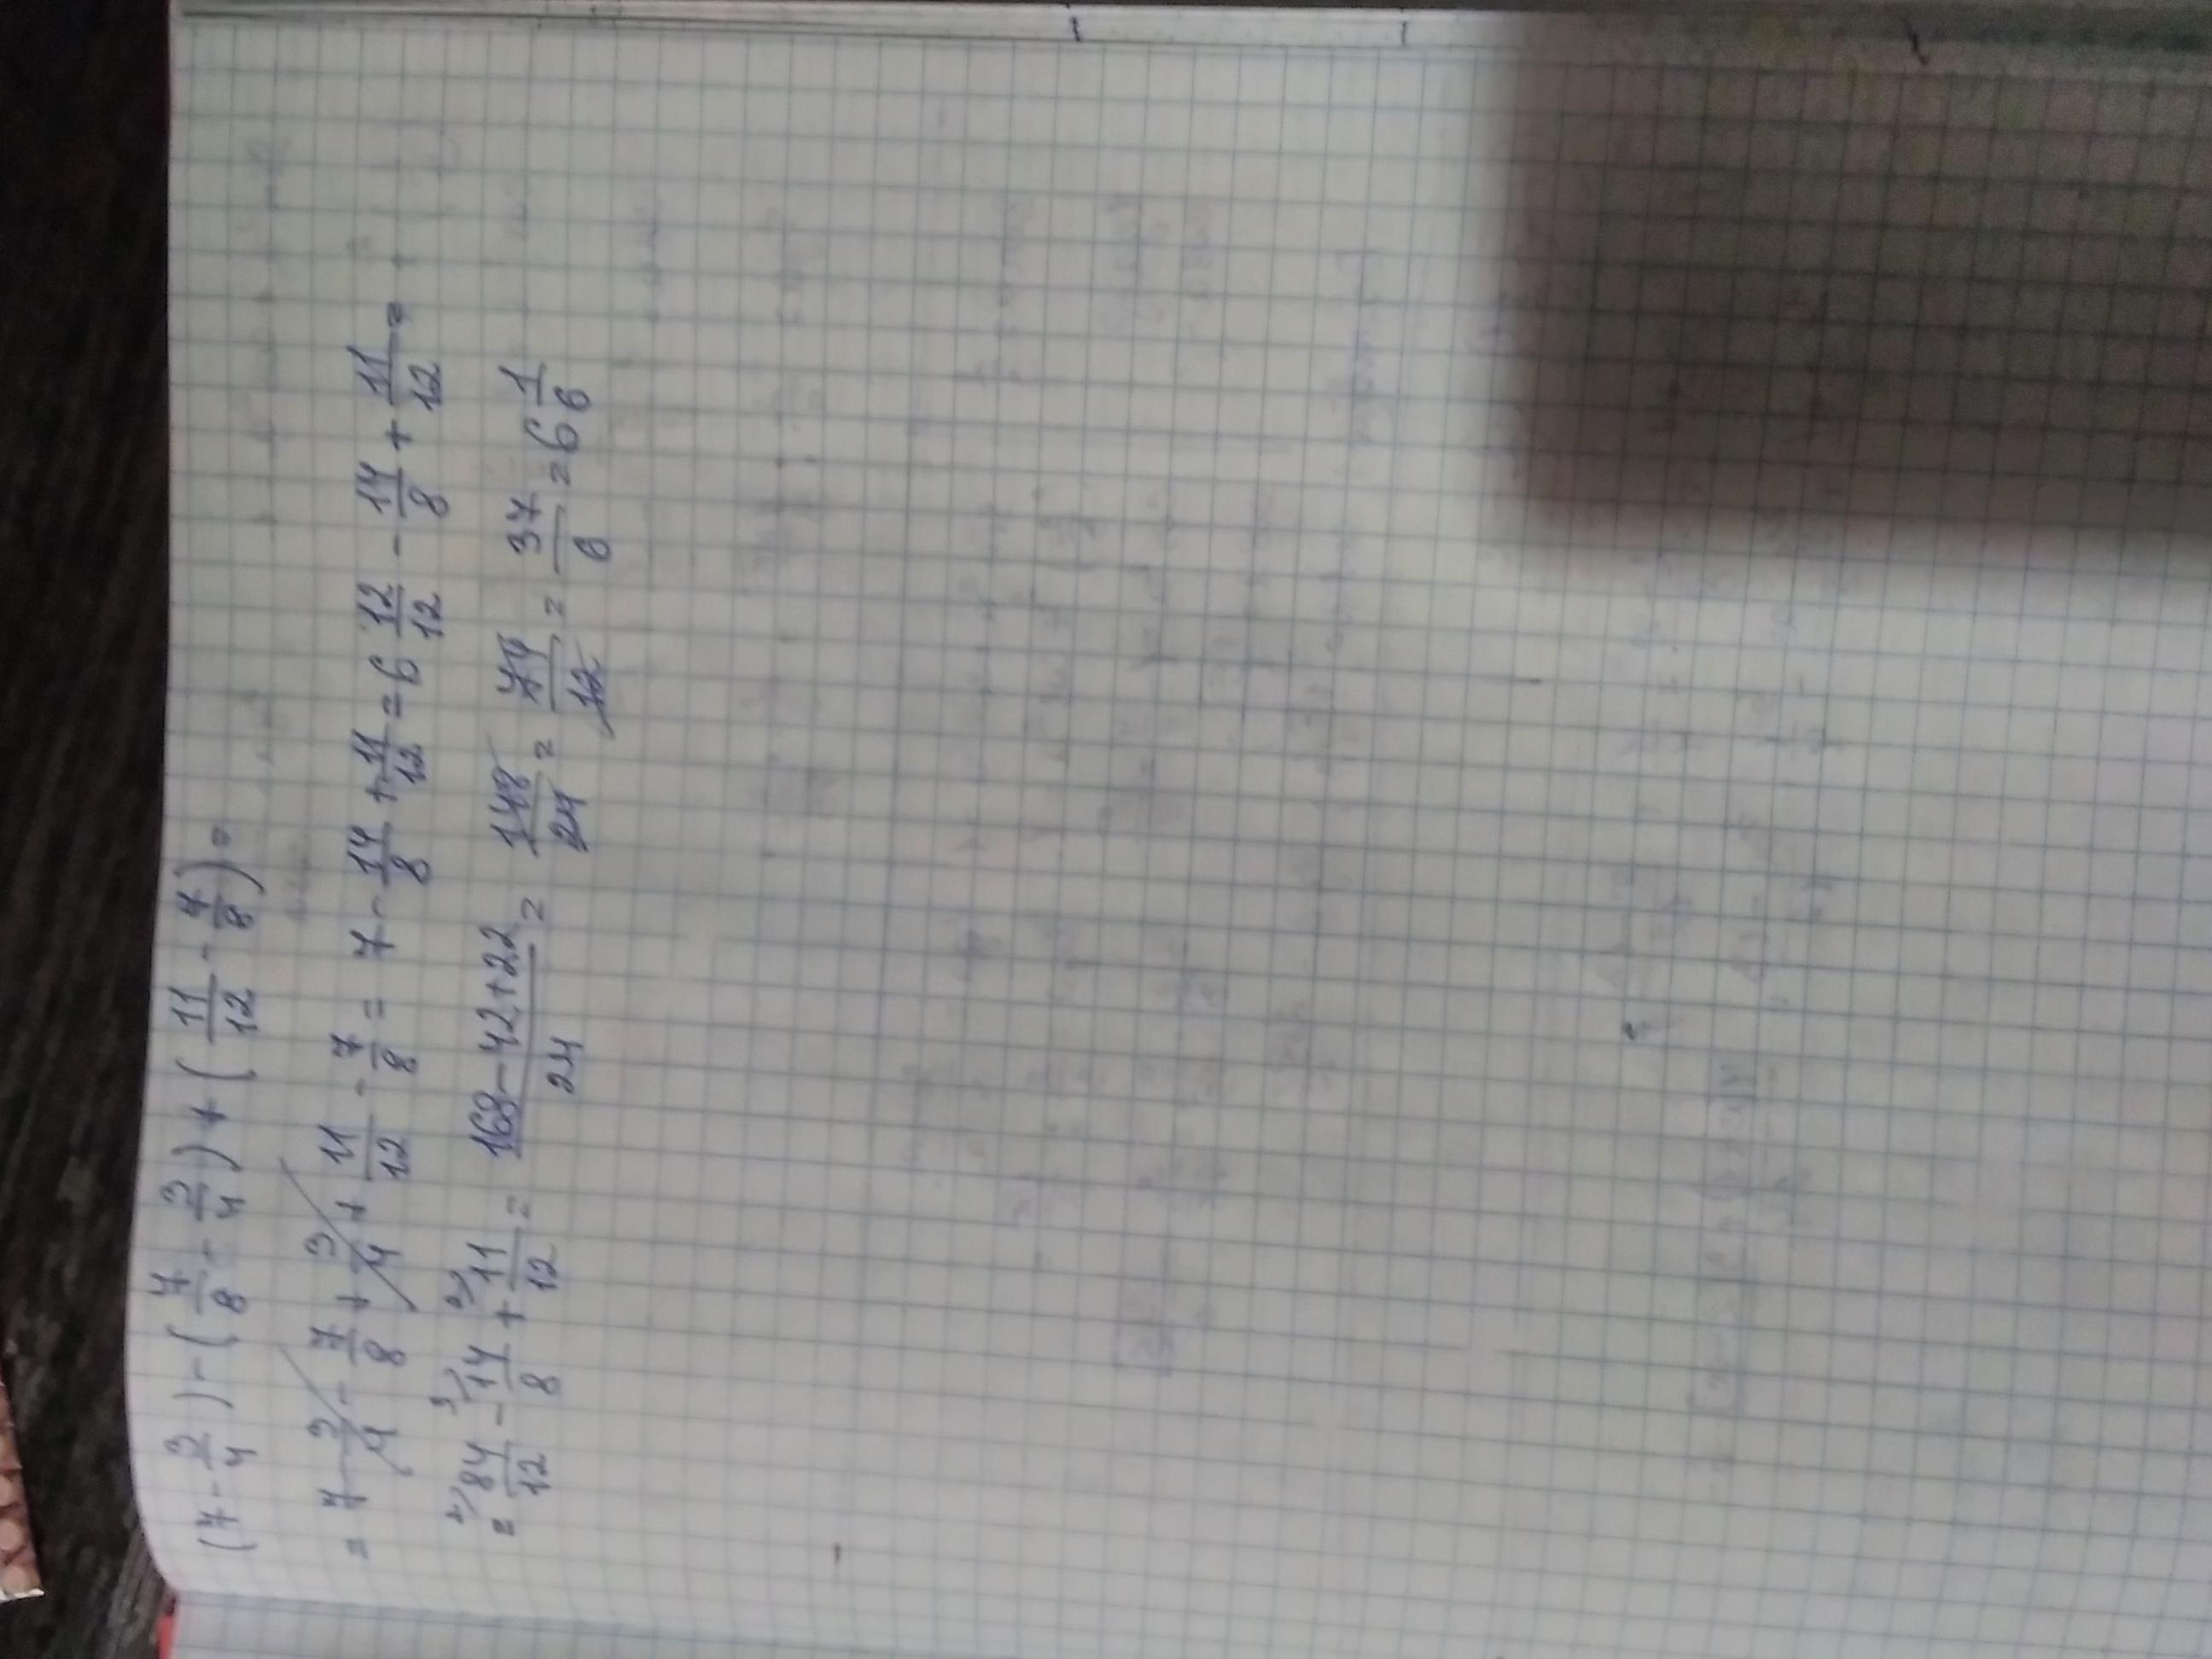 (7 - 3/4) - (7/8 - 3/4) + (11/12 - 7/8) =
= 7 - 3/4 - 7/8 + 3/4 + 11/12 - 7/8 = 7 - 14/8 + 11/12 = 6 12/12 - 14/8 + 11/12 =
= 2) 84/12 - 3) 14/8 + 2) 11/12 = (168 - 42 + 22)/24 = 148/24 = 74/12 = 37/6 = 6 1/6